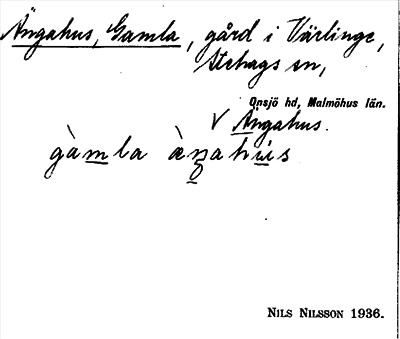 Ängahus, Gamla, gård i Värlinge,
Stehags sn,
Onsjö hd, Malmöhus län.
V Ängahus.
gàmla àŋahus
NILS NILSSON 1936.